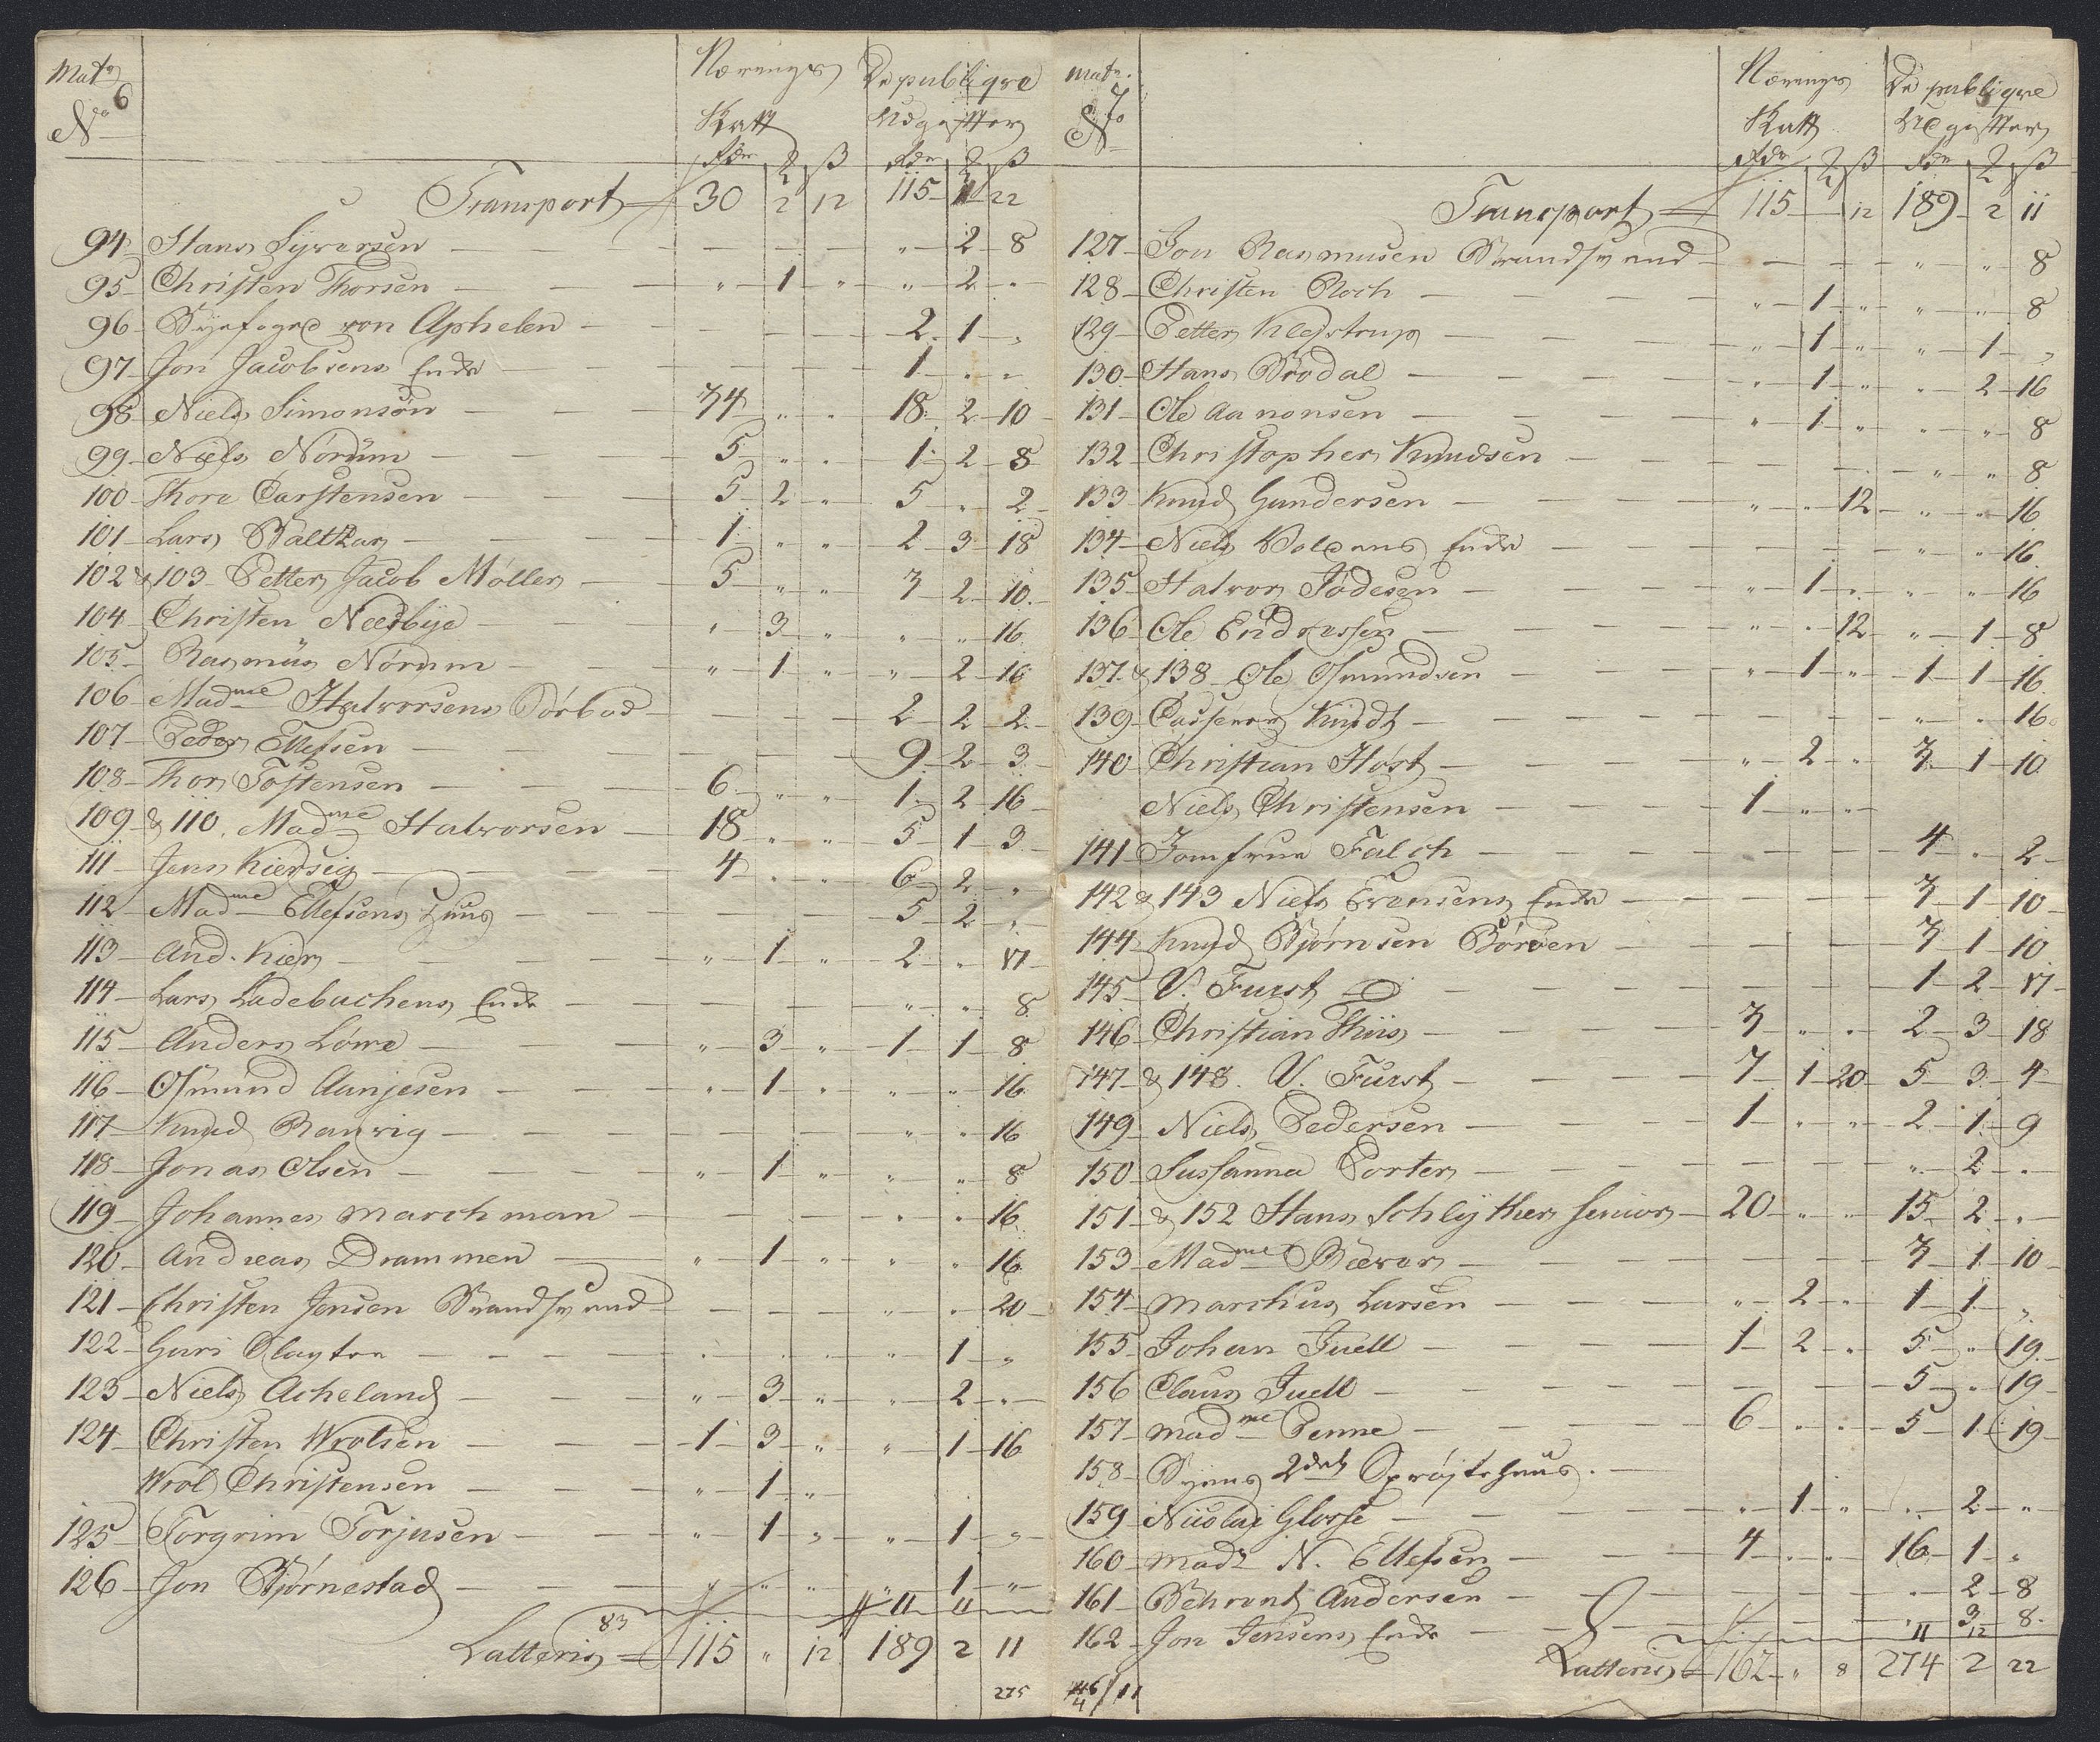 Mat.
No 6
Nærings Skatt
De publiqve Udgifter
Rdr 2 ß Rdr 2 ß
Transport 30 2 12 115 1 22
94 Hans Syversen " 2 8
95 Christen Thorsen " 1 " " 2 "
96 Byefoged von Aphelen 2 1 "
97 Jon Jacobsens Enke 1 " "
98 Niels Simonsøn 34 " " 18 2 10
99 Niels Nórum 5 " " 1 2 8
100 Thore Carstensen 5 2 " 5 " 2
101 Lars Balthar 1 " " 2 3 18
102 & 103 Petter Jacob Møller 5 " " 3 2 10
104 Christen Nedbye " 3 " " " 16
105 Rasmus Nórum " 1 " " 2 16
106 Madme Halvorsens Sørbod 2 2 2
107 Peder Ellefsen 9 2 3
108 Thor Tostensen 6 " " 1 2 16
109 & 110 Madme Halvorsen 18 " " 5 1 3
111 Jens Kiersig 4 " " 6 2 "
112 Madme Ellefsens Huus 5 2 "
113 And. Kier " 1 " 2 " 17
114 Lars Ladebuchens Enke " " 8
115 Anders Löwe " 3 " 1 1 8
116 Osmund Aanjesen " 1 " " " 16
117 Knud Ranvig " " 16
118 Jonas Olsen " 1 " " " 8
119 Johannes Marchman " " 16
120 Andreas Drammen " 1 " " " 16
121 Christen Jensen Strandsund " " 20
122 Guri Clayton " 1 "
123 Niels Acheland " 3 " " 2 "
124 Christen Wrolsen 1 3 " " 1 16
Wrol Christensen " 1 "
125 Torgrim Torjusen " 1 " " 1 "
126 Jon Bjørnestad " " " 1 "
83 11 11
Latteris 115 " 12 189 2 11
275
Mat.
No 7
Nærings Skatt
De publiqve Udgifter
Rdr 2 ß Rdr 2 ß
Transport 115 12 189 2 11
127 Jon Rasmusen Strandsund " " 8
128 Christen Roch " 1 " " " 8
129 Petter Klejstrup " 1 " " 1 "
130 Hans Brodal " 1 " " 2 16
131 Ole Aanonsen " 1 " " " 8
132 Christopher Knudsen " " 8
133 Knud Gundersen " " 12 " " 16
134 Niels Enke " " 16
135 Halvor Jödesen " 1 " " " 16
136 Ole Endresen " " 12 " 1 8
137 & 138 Ole Osmundsen " 1 " 1 1 16
139 Casserer Knudt " " 16
140 Christian Høst " 2 " 3 1 10
Niels Christensen 1 " "
141 Jomfrue Falch 4 " 2
142 & 143 Niels Evensens Enke 3 1 10
144 Knud Bjørnsen Børöen 3 1 10
145 V. Furst 1 2 17
146 Christian Thiis 3 " " 2 3 18
147 & 148. V. Furst 7 1 20 5 3 4
149 Niels Pedersen 1 " " 2 1 9
150 Sussanna Porter " 2 "
151 & 152 Hans Schlÿther Senior 20 " " 15 2 "
153 Madme Bævar 3 1 10
154 Marchus Larsen " 2 " 1 1 "
155 Johan Juell 1 2 " 5 " 19
156 Claus Juell 5 " 19
157 Madme Penne 6 " " 5 1 19
158 Byens 2det Sprøjtehuus.
159 Nicolai Glosse " 1 " " 2 "
160 Mad N. Ellefsen 4 " " 16 1 "
161 Behrent Andersen " 2 8
162 Jon Jensens Enke " 3 8
11 12
Latteris 162 " 8 274 2 22